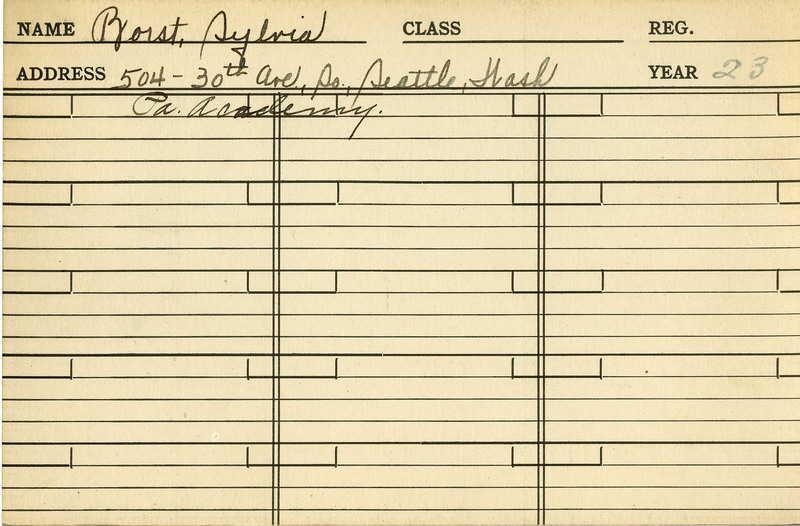 NAME Borst, Sylvia CLASS REG.
ADDRESS 504-30th Ave, So., Seattle, Wash YEAR 23
Pa. Academy.